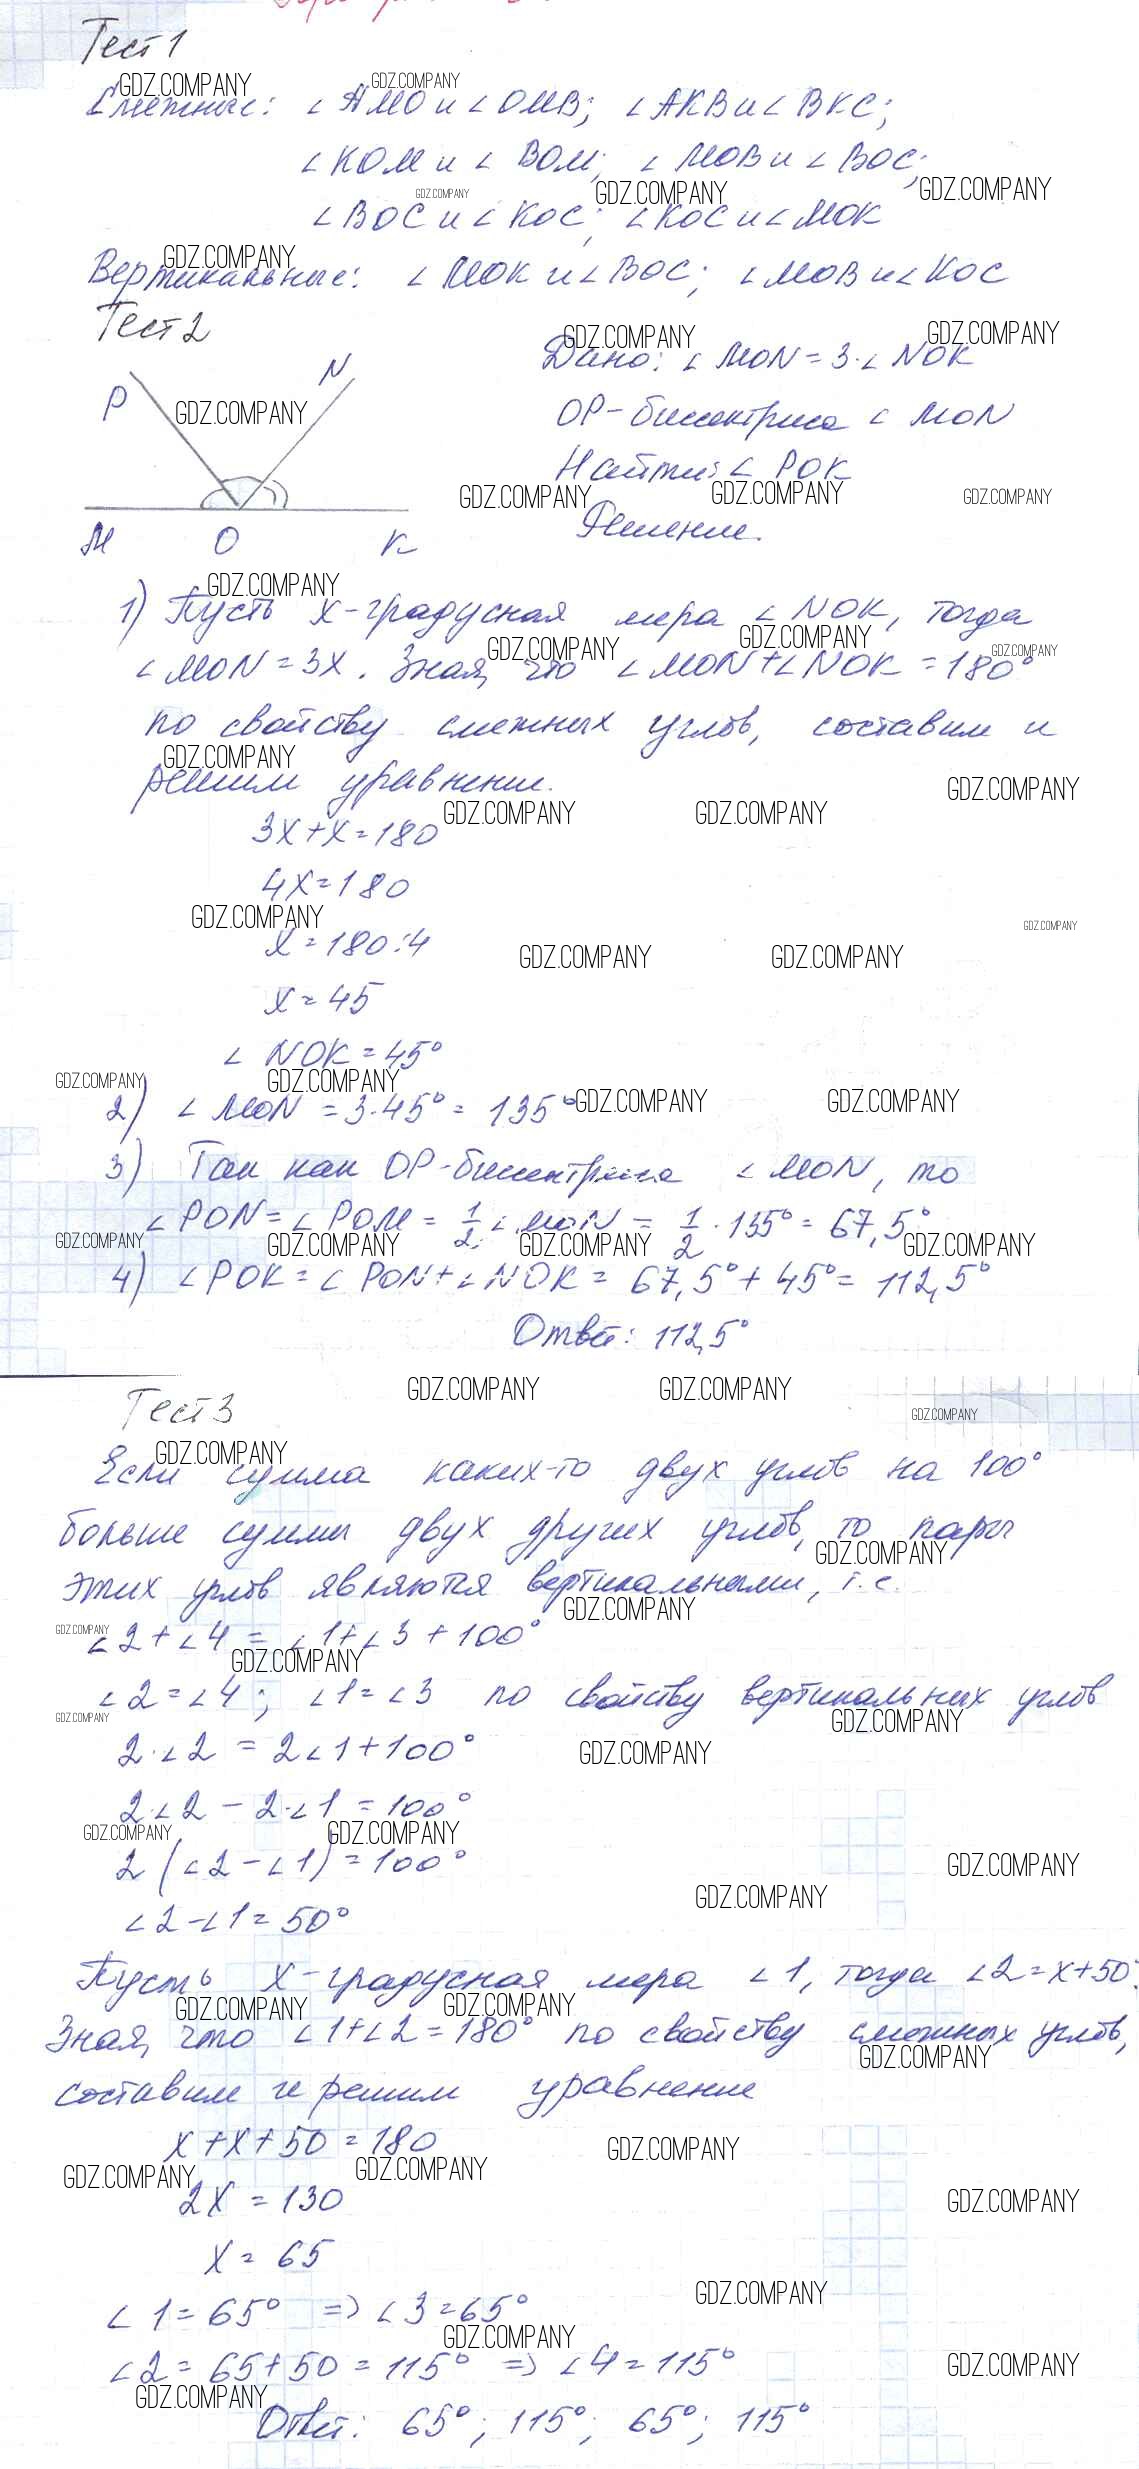 Тест 1
Смежные: ∠АМО и ∠ОМВ; ∠АКВ и ∠ВКС;
∠КОМ и ∠ВОМ; ∠МОВ и ∠ВОС;
∠ВОС и ∠КОС; ∠КОС и ∠МОК
Вертикальные: ∠МОК и ∠ВОС; ∠МОВ и ∠КОС
Тест 2
Дано: ∠MON = 3·∠NOK
OP-биссектриса ∠MON
Найти: ∠POK
Решение.
P N
M O K
1) Пусть x-градусная мера ∠NOK, тогда
∠MON = 3x. Зная, что ∠MON + ∠NOK = 180°
по свойству смежных углов, составим и
решим уравнение.
3x + x = 180
4x = 180
x = 180:4
x = 45
∠NOK = 45°
2) ∠MON = 3·45° = 135°
3) Так как OP-биссектриса ∠MON, то
∠PON = ∠POM = 1/2 ∠MON = 1/2 · 135° = 67,5°
4) ∠POK = ∠PON + ∠NOK = 67,5° + 45° = 112,5°
Ответ: 112,5°
Тест 3
Если сумма каких-то двух углов на 100°
больше суммы двух других углов, то пары
этих углов являются вертикальными, т.е.
∠2 + ∠4 = ∠1 + ∠3 + 100°
∠2 = ∠4; ∠1 = ∠3 по свойству вертикальных углов
2·∠2 = 2∠1 + 100°
2·∠2 - 2·∠1 = 100°
2(∠2 - ∠1) = 100°
∠2 - ∠1 = 50°
Пусть x-градусная мера ∠1, тогда ∠2 = x + 50°.
Зная, что ∠1 + ∠2 = 180° по свойству смежных углов,
составим и решим уравнение
x + x + 50 = 180
2x = 130
x = 65
∠1 = 65° => ∠3 = 65°
∠2 = 65 + 50 = 115° => ∠4 = 115°
Ответ: 65°; 115°; 65°; 115°
GDZ.COMPANY